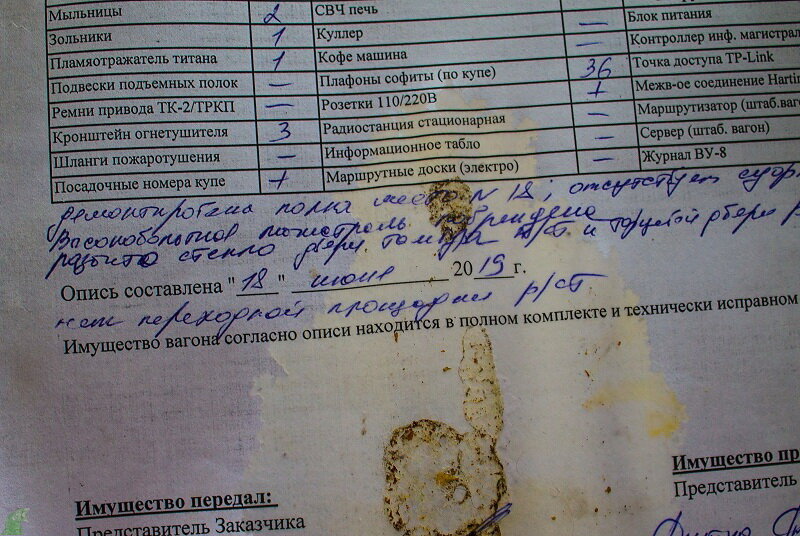 Мыльницы 2 СВЧ печь Блок питания
Зольники 1 Куллер — Контроллер инф. магистрал
Пламяотражатель титана 1 Кофе машина — Точка доступа TP-Link
Подвески подъемных полок — Плафоны софиты (по купе) 36 Межв-ое соединение Hartin
Ремни привода ТК-2/ТРКП — Розетки 110/220В + Маршрутизатор (штаб.ваг
Кронштейн огнетушителя 3 Радиостанция стационарная — Сервер (штаб. вагон)
Шланги пожаротушения — Информационное табло — Журнал ВУ-8
Посадочные номера купе + Маршрутные доски (электро) —
полка место N 18, отсутствует
Высоковольтная магистраль повреждена
разбито стекло двери тамбура и торцевой двери
Опись составлена "18" июня 2019 г.
нет переходной площадки р/ст
Имущество вагона согласно описи находится в полном комплекте и технически исправном
Имущество пр
Представитель
Имущество передал:
Представитель Заказчика